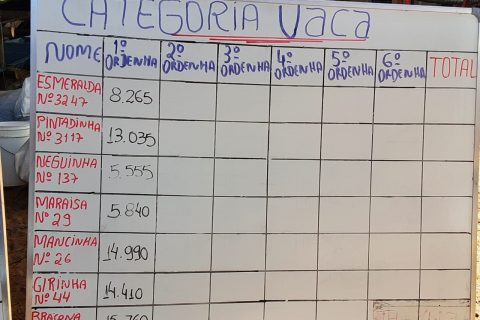 CATEGORIA VACA
NOME 1º ORDENHA 2º ORDENHA 3º ORDENHA 4º ORDENHA 5º ORDENHA 6º ORDENHA TOTAL
ESMERALDA
Nº 3247 8.265
PINTADINHA
Nº 3117 13.035
NEGUINHA
Nº 137 5.555
MARAISA
Nº 29 5.840
MANCINHA
Nº 26 14.990
GIRINHA
Nº 44 14.410